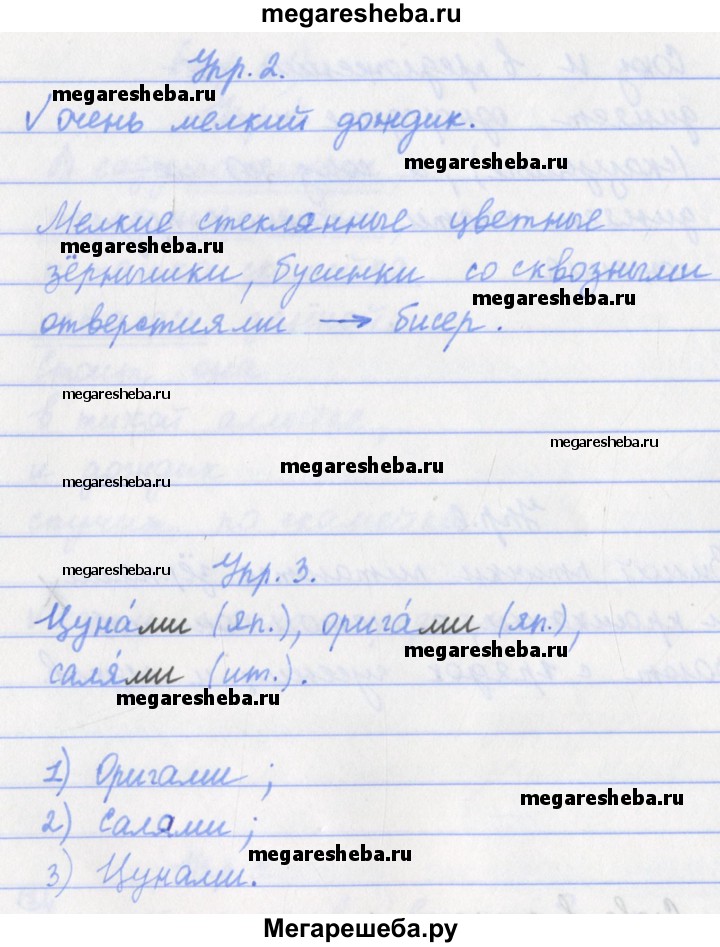 megaresheba.ru
Упр. 2.
megaresheba.ru
√ очень мелкий дождик.
megaresheba.ru
Мелкие стеклянные цветные
megaresheba.ru
зёрнышки, бусинки со сквозными
megaresheba.ru
отверстиями → бисер.
megaresheba.ru
megaresheba.ru
megaresheba.ru
megaresheba.ru
megaresheba.ru
Упр. 3.
Цуна́ми (яп.), орига́ми (яп.),
megaresheba.ru
саля́ми (ит.).
megaresheba.ru
1) Оригами;
megaresheba.ru
2) Салями;
megaresheba.ru
3) Цунами.
Мегарешеба.ру